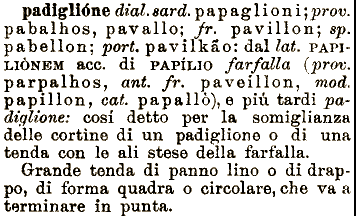 padiglióne dial. sard. papaglioni; prov.
pabalhos, pavallo; fr. pavillon; sp.
pabellon; port. pavilkão: dal lat. PAPI-
LIÒNEM acc. di PAPÍLIO farfalla (prov.
parpalhos, ant. fr. paveillon, mod.
papillon, cat. papalló), e piú tardi pa-
diglione: cosí detto per la somiglianza
delle cortine di un padiglione o di una
tenda con le ali stese della farfalla.
Grande tenda di panno lino o di drap-
po, di forma quadra o circolare, che va a
terminare in punta.